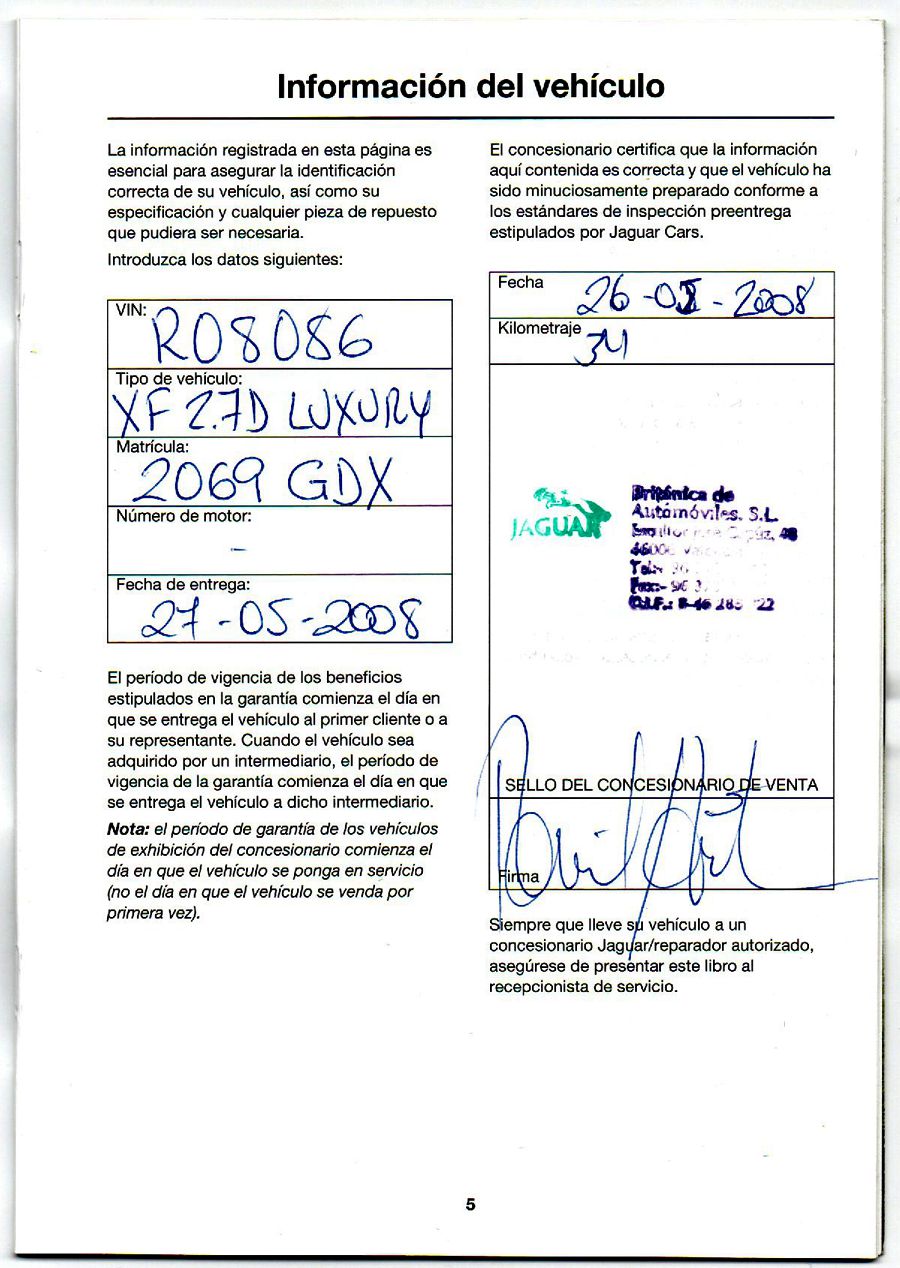 Información del vehículo
La información registrada en esta página es
esencial para asegurar la identificación
correcta de su vehículo, así como su
especificación y cualquier pieza de repuesto
que pudiera ser necesaria.
Introduzca los datos siguientes:
VIN:
R08086
Tipo de vehículo:
XF 2.7D LUXURY
Matrícula:
2069 GDX
Número de motor:
-
Fecha de entrega:
27-05-2008
El período de vigencia de los beneficios
estipulados en la garantía comienza el día en
que se entrega el vehículo al primer cliente o a
su representante. Cuando el vehículo sea
adquirido por un intermediario, el período de
vigencia de la garantía comienza el día en que
se entrega el vehículo a dicho intermediario.
Nota: el período de garantía de los vehículos
de exhibición del concesionario comienza el
día en que el vehículo se ponga en servicio
(no el día en que el vehículo se venda por
primera vez).
El concesionario certifica que la información
aquí contenida es correcta y que el vehículo ha
sido minuciosamente preparado conforme a
los estándares de inspección preentrega
estipulados por Jaguar Cars.
Fecha
26- -2008
Kilometraje
34
JAGUAR
Británica de
Automóviles, S.L.
48
Tel:- 96
Fax:- 96
C.I.F.:
SELLO DEL CONCESIONARIO DE VENTA
Firma
Siempre que lleve su vehículo a un
concesionario Jaguar/reparador autorizado,
asegúrese de presentar este libro al
recepcionista de servicio.
5